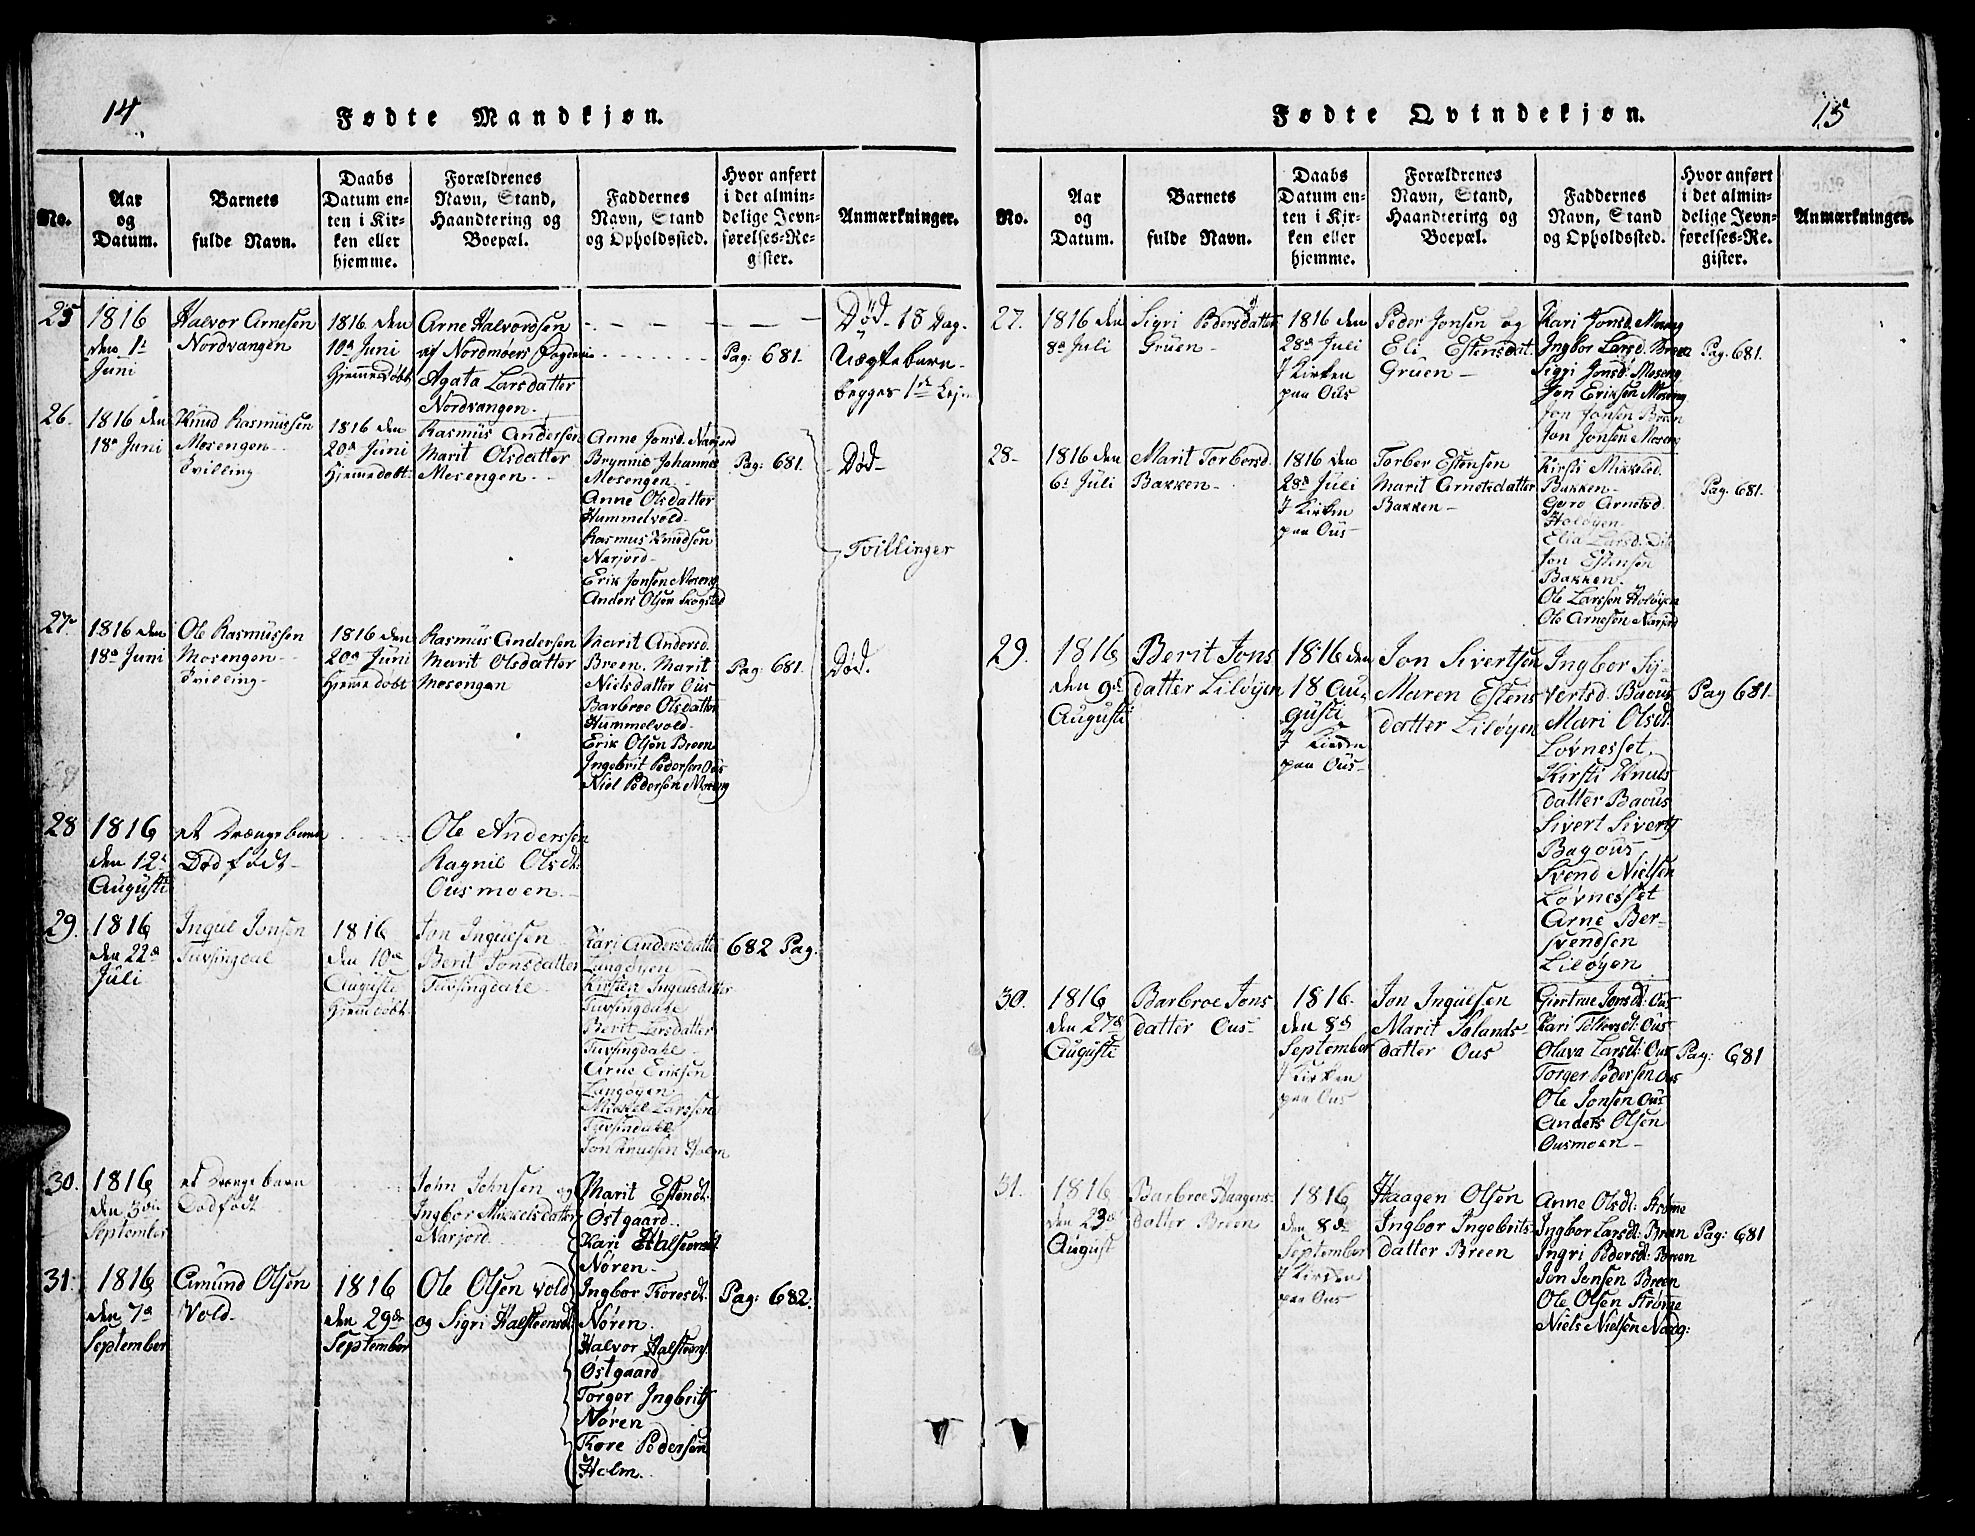 14
Fødte Mandkjøn.
No.
Aar
og
Datum.
Barnets
fulde Navn.
Daabs
Datum en-
ten i Kir-
ken eller
hjemme.
Forældrenes
Navn, Stand,
Haandtering og
Boepæl.
Faddernes
Navn, Stand
og Opholdssted.
Hvor anført
i det almin-
delige Jevn-
førelses-Re-
gister.
Anmærkninger.
25
1816
den 1t
Juni
Halvor Arnesen
Nordvangen
1816 den
10d Juni
Hjemmedøbt
Arne Halvordsen
af Nordmøers Fogderie
Agata Larsdatter
Nordvangen.
Pag: 681.
Død. 18 Dag.
Uægte barn.
begges 1ste Lejr
26.
1816 den
18d Juni
Knud Rasmussen
Mosengen
Tvilling
1816 den
20d Juni
Hjemmedøbt
Rasmus Andersen
Marit Olsdatter
Mosengen
Anne Jonsd. Narjord
Brynnie Johannes
Mosengen
Anne Olsdatter
Hummelvold
Rasmus Knudsen
Narjord
Erik Jonsen Moseng
Anders Olsen Skogstad
Pag: 681.
Død
Tvillinger
27
1816 den
18d Juni
Ole Rasmussen
Mosengen
Tvilling
1816 den
20d Juni
Hjemmedøbt
Rasmus Andersen
Marit Olsdatter
Mosengen
Marit Andersd.
Breen, Marit
Nielsdatter Ous
Barbroe Olsdatter
Hummelvold
Erik Olsen Breen
Ingebrit Pedersen Ous
Niel Pedersen Moseng
Pag: 681.
Død.
28
1816
den 12t
Augusti
et Drænge barn
Dødfødt
Ole Anderssen
Ragnil Olsdt:
Ousmoen.
29.
1816
den 22d
Juli
Ingul Jonsen
Tufsingdal
1816
den 10d
Augusti
Hjemmedøbt
Jon Ingulsen
Berit Jonsdatter
Tufsingdale
Kari Andersdatter
Langøyen
Kirsten Ingulsdatter
Tufsingdale
Berit Larsdatter
Tufsingdale
Arne Eriksen
Langøyen
Mikkel Larssen
Tufsindale
Jon Knutsen Holm
682 Pag.
30.
1816
den 3die
September
et Drænge barn
Dødfødt
John Johnsen og
Ingbor Mickelsdatter
Narjord
Marit Estendt.
Østgaard
Kari Halsteensdt
Nøren
31.
1816
den 7d
September
Amund Olsen
Vold
1816
den 29de
September
Ole Olsen Vold
og Sigri Halsteensdt
Ingbor Toresdt.
Nøren.
Halvor Halsteens.
Østgaard
Torger Ingbrits
Nøren
Tore Pedersen
Holm.
Pag: 682.
Fødte Qvindekjøn.
15
No.
Aar
og
Datum.
Barnets
fulde Navn.
Daabs
Datum en-
ten i Kir-
ken eller
hjemme.
Forældrenes
Navn, Stand,
Haandtering og
Boepæl.
Faddernes
Navn, Stand
og Opholdssted.
Hvor anført
i det almin-
delige Jevn-
førelses-Re-
gister.
Anmærkninger.
27.
1816 den
8d Juli
Sigri Pedersdatter
Gruen
1816 den
28d Juli
I Kirken
paa Ous
Peder Jonsen og
Eli Estensdat.
Gruen
Kari Jonsd. Moseng
Ingbor Larsd. Breen
Sigri Jonsd: Moseng
Jon Eriksen Moseng
Jon Jonsen Breen
Jon Jonsen Moseng
Pag: 681.
28
1816 den
6t Juli
Marit Torbersd.
Bakken
1816 den
28d Juli
I Kirken
paa Ous
Torber Estensen
Marit Arnetsdatter
Bakken
Kirsti Mikkelsd.
Bakken
Guro Arnetsd.
Holøyen
Elia Larsd: Dito
Jon Estensen
Bakken.
Ole Larssen Holøyen
Ole Arnesen Narjord
Pag. 681.
29.
1816
den 9d
Augusti
Berit Jons
datter Liløyen
1816 den
18 Au-
gusti
I Kirken
paa Ous
Jon Sivertsen
Maren Estens
datter Liløyen
Ingbor Sy-
vertsd. Baous
Mari Olsdt.
Løvnesset.
Kirsti Knuds
datter Baous
Sivert Siverts
Bagous
Svend Nielsen
Løvnesset
Arne Ber-
svendsen
Liløyen
Pag 681.
30.
1816
den 27d
Augusti
Barbroe Jons
datter Ous
1816.
den 8d
September
I Kirken
paa Ous
Jon Ingulsen
Marit Salands-
datter Ous
Giertrue Jonsdt: Ous
Kari Tollevsdt: Ous
Olava Larsdt: Ous
Torger Pedersen Ous
Ole Jonsen Ous
Anders Olsen
Ousmoen
Pag: 681
31.
1816
den 23d
August
Barbroe Haagens-
datter Breen
1816
den 8de
September
I Kirken
paa Ous
Haagen Olsen
Ingbor Ingebrits-
datter Breen
Anne Olsdt: Strømme
Ingbor Larsdt: Breen
Ingri Pedersdt: Breen
Jon Jensen Breen
Ole Olsen Strømme
Niels Nielsen Nordg:
Pag: 681